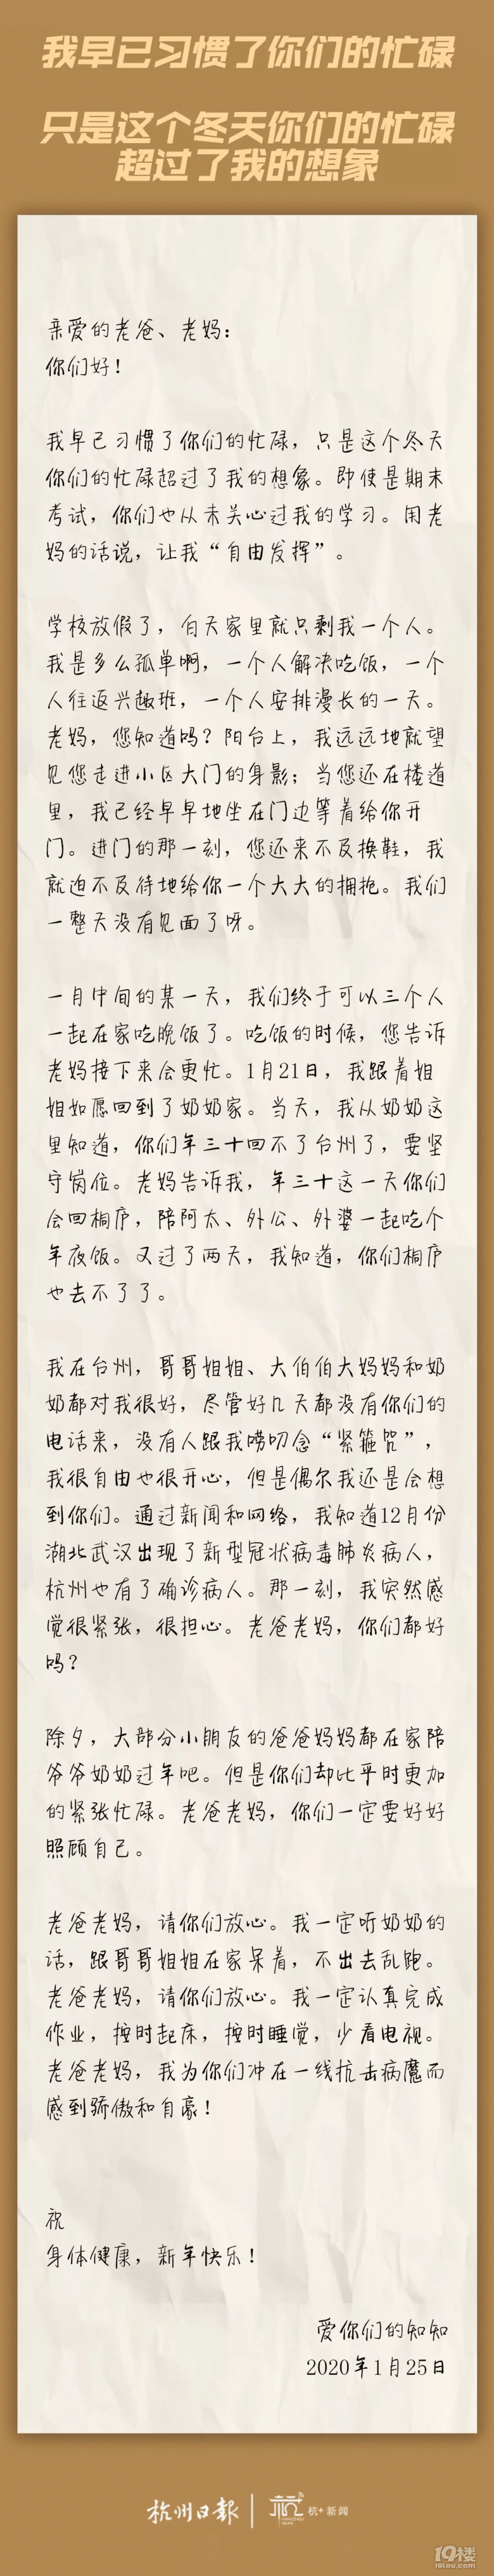 我早已习惯了你们的忙碌
只是这个冬天你们的忙碌
超过了我的想象
亲爱的老爸、老妈：
你们好！
我早已习惯了你们的忙碌，只是这个冬天
你们的忙碌超过了我的想象。即使是期末
考试，你们也从未关心过我的学习。用老
妈的话说，让我“自由发挥”。
学校放假了，白天家里就只剩我一个人。
我是多么孤单啊，一个人解决吃饭，一个
人往返兴趣班，一个人安排漫长的一天。
老妈，您知道吗？阳台上，我远远地就望
见您走进小区大门的身影；当您还在楼道
里，我已经早早地坐在门边等着给你开
门。进门的那一刻，您还来不及换鞋，我
就迫不及待地给你一个大大的拥抱。我们
一整天没有见面了呀。
一月中旬的某一天，我们终于可以三个人
一起在家吃晚饭了。吃饭的时候，您告诉
老妈接下来会更忙。1月21日，我跟着姐
姐如愿回到了奶奶家。当天，我从奶奶这
里知道，你们年三十回不了台州了，要坚
守岗位。老妈告诉我，年三十这一天你们
会回桐庐，陪阿太、外公、外婆一起吃个
年夜饭。又过了两天，我知道，你们桐庐
也去不了了。
我在台州，哥哥姐姐、大伯伯大妈妈和奶
奶都对我很好，尽管好几天都没有你们的
电话来，没有人跟我唠叨念“紧箍咒”，
我很自由也很开心，但是偶尔我还是会想
到你们。通过新闻和网络，我知道12月份
湖北武汉出现了新型冠状病毒肺炎病人，
杭州也有了确诊病人。那一刻，我突然感
觉很紧张，很担心。老爸老妈，你们都好
吗？
除夕，大部分小朋友的爸爸妈妈都在家陪
爷爷奶奶过年吧。但是你们却比平时更加
的紧张忙碌。老爸老妈，你们一定要好好
照顾自己。
老爸老妈，请你们放心。我一定听奶奶的
话，跟哥哥姐姐在家呆着，不出去乱跑。
老爸老妈，请你们放心。我一定认真完成
作业，按时起床，按时睡觉，少看电视。
老爸老妈，我为你们冲在一线抗击病魔而
感到骄傲和自豪！
祝
身体健康，新年快乐！
爱你们的知知
2020年1月25日
杭州日報 杭+新闻
19楼
19lou.com